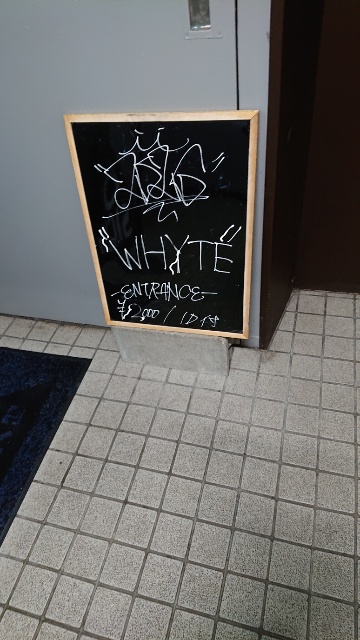 "WHYTE"
-ENTRANCE-
¥2000/1D付